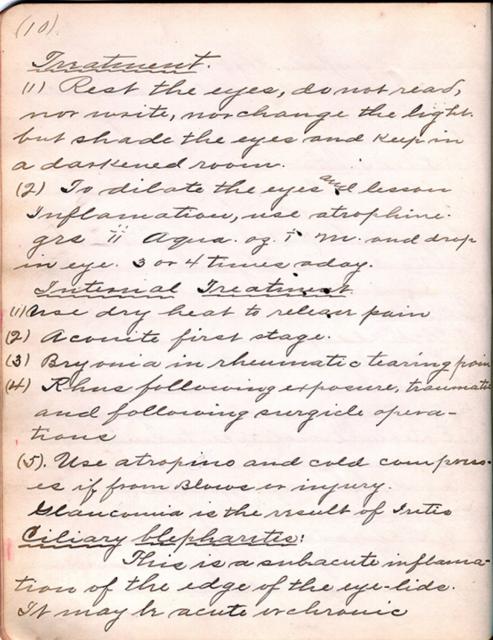 (10)
Treatment.
(1) Rest the eyes, do not read,
nor write, nor change the light.
but shade the eyes and keep in
a darkened room.
(2) To dilate the eyes and lesson
Inflamation, use atrophine.
grs ii Aqua. oz. i M. and drop
in eye. 3 or 4 times a day.
Internal Treatment
(1) Use dry heat to pain
(2) Aconite first stage.
(3) Bryonia in rheumatic tearing pain
(4) Rhus following exposure,
and following surgicle opera-
tions
(5). Use atropino and cold compress-
es if from Blows or injury.
Glaucomia is the result of Iritis
Ciliary blepharites:
This is a subacute inflama-
tion of the edge of the eye-lids.
It may be acute or chronic